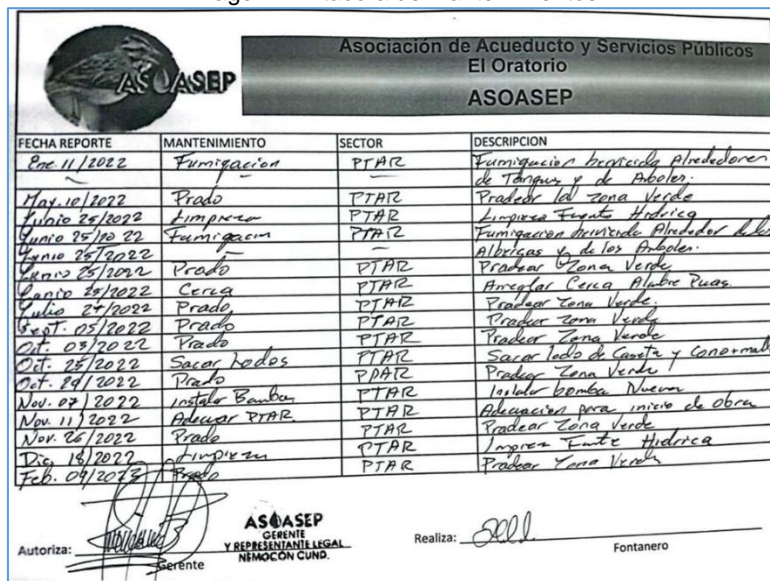 ASOASEP
Asociación de Acueducto y Servicios Públicos
El Oratorio
ASOASEP
FECHA REPORTE MANTENIMIENTO SECTOR DESCRIPCION
Ene. 11/2022 Fumigacion PTAR Fumigacion hervicida Alrededores
de Tanques y de Arboles.
May. 10/2022 Prado PTAR Pradear la zona Verde
Junio 25/2022 Limpieza PTAR Limpieza Fuente Hidrica
Junio 25/2022 Fumigacion PTAR Fumigacion hervicida Alrededor de los
Junio 25/2022 y de los Arboles.
Junio 25/2022 Prado PTAR Pradear Zona Verde
Junio 25/2022 Cerca PTAR Arreglar Cerca Alambre Puas.
Julio 27/2022 Prado PTAR Pradear Zona Verde.
Sept. 05/2022 Prado PTAR Pradear Zona Verde
Oct. 03/2022 Prado PTAR Pradear Zona Verde
Oct. 25/2022 Sacar Lodos PTAR Sacar lodo de Caseta y
Oct. 29/2022 Prado PDAR Pradear Zona Verde
Nov. 07/2022 instalar Bomba PTAR Instalar bomba Nueva
Nov. 11/2022 Adecuar PTAR PTAR Adecuacion para inicio de obra
Nov. 26/2022 Prado PTAR Pradear Zona Verde
Dic. 18/2022 Limpieza PTAR Hidrica
Feb. 09/2023 Prado PTAR Pradear Zona Verde
Autoriza: Gerente
ASOASEP
GERENTE
Y REPRESENTANTE LEGAL
NEMOCÓN CUND.
Realiza: Fontanero